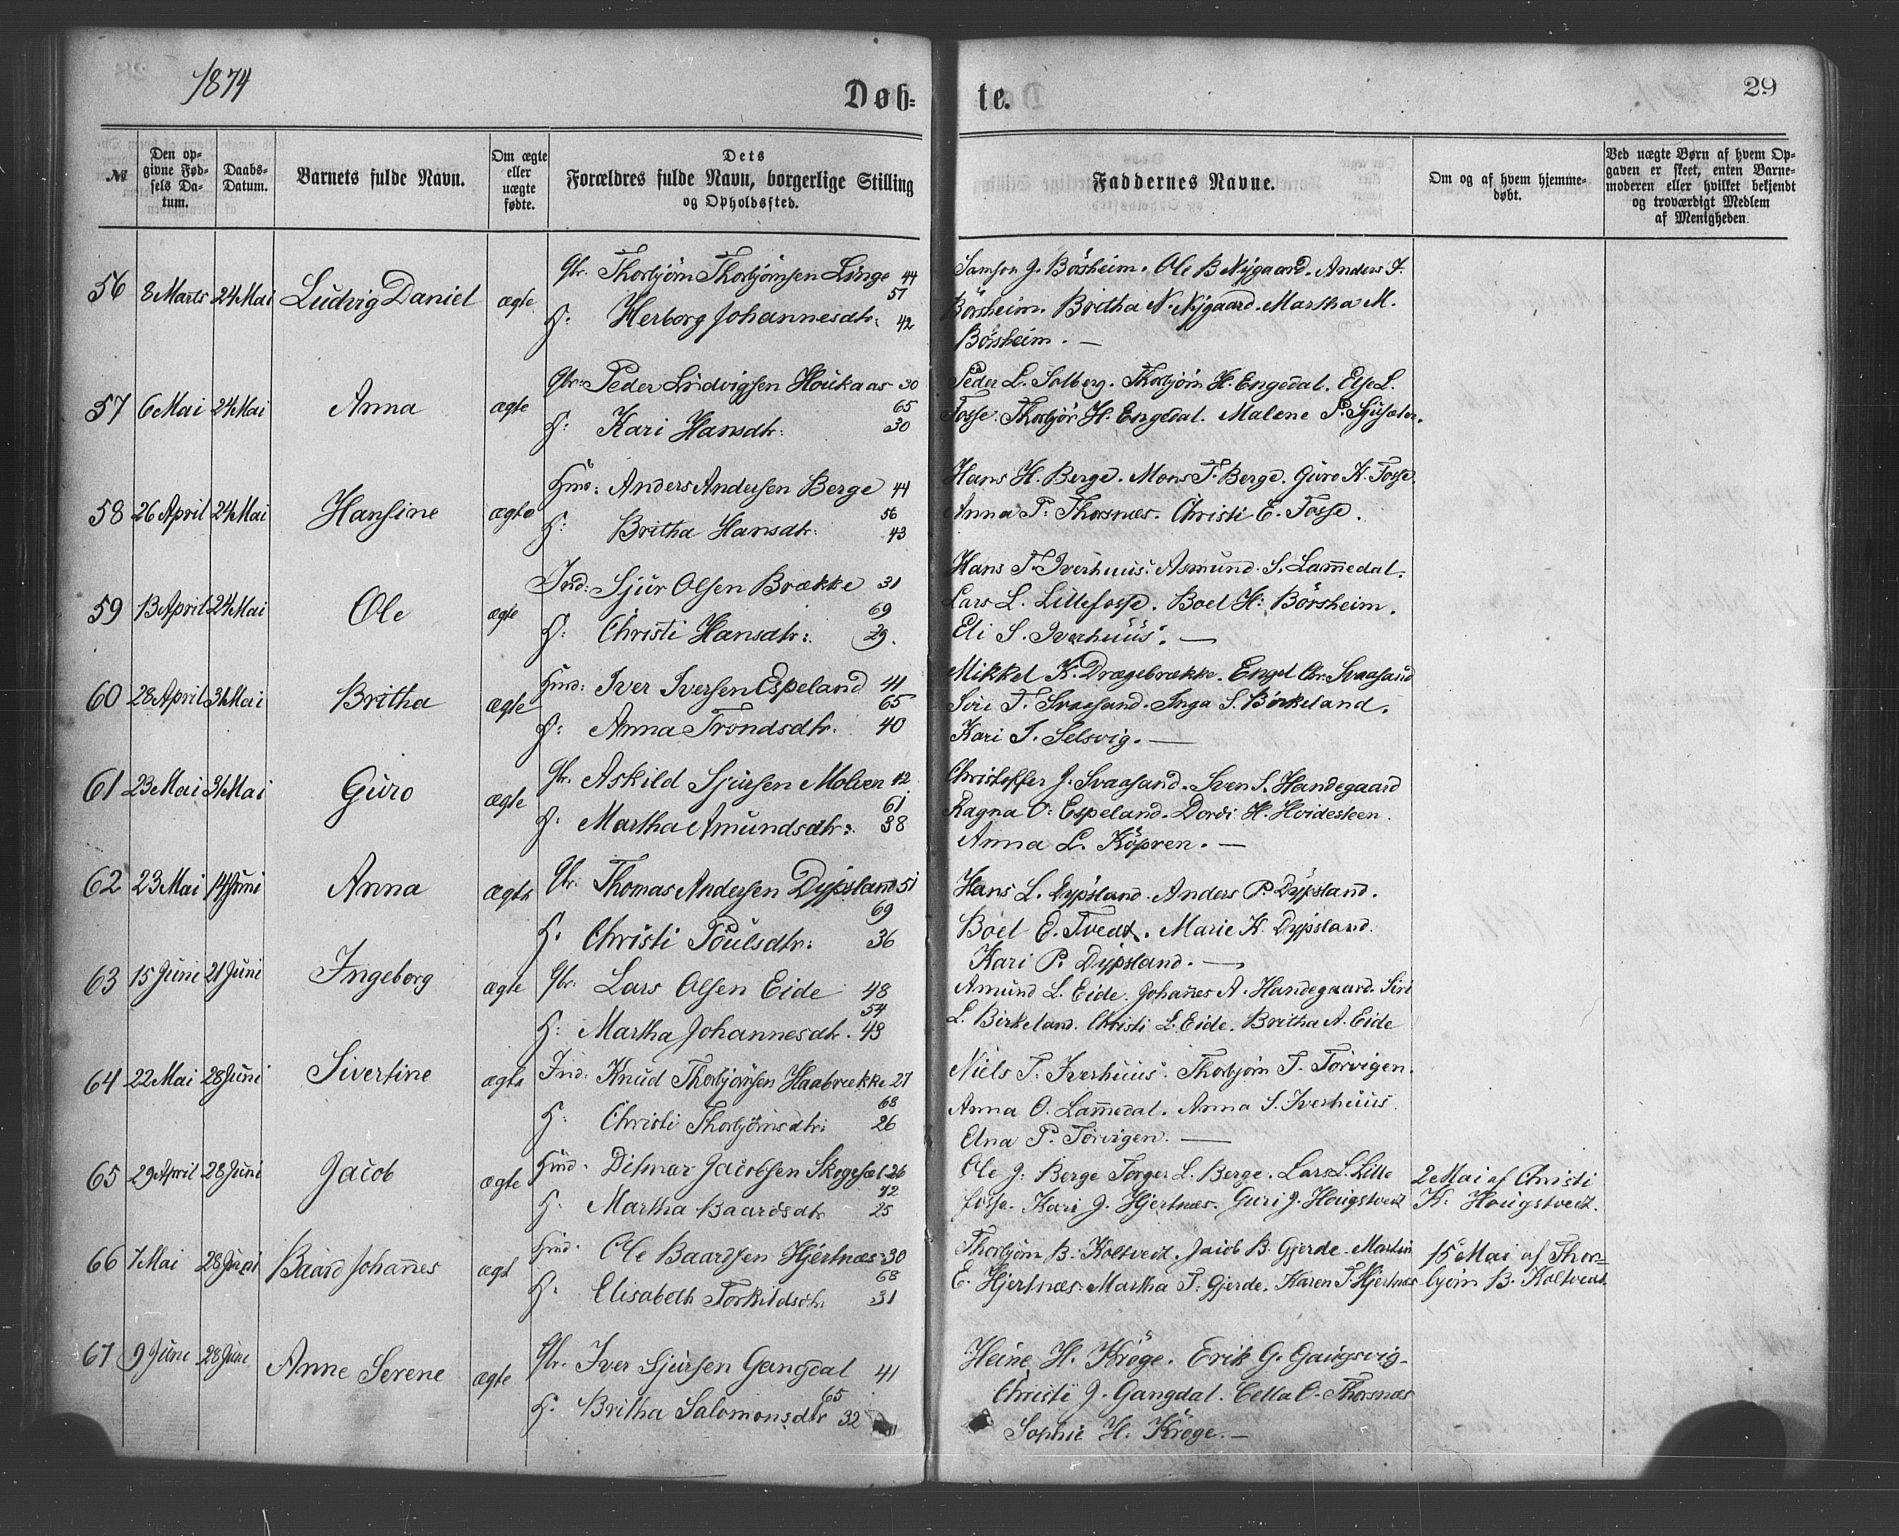 1874
Døb-
te.
29
№
Den op-
givne Fød-
sels Da-
tum.
Daabs-
Datum.
Barnets fulde Navn.
Om ægte
eller
uægte
fødte.
Dets
Forældres fulde Navn, borgerlige Stilling
og Opholdssted.
Faddernes Navne.
Om og af hvem hjemme-
døbt.
Ved uægte Børn af hvem Op-
gaven er skeet, enten Barne-
moderen eller hvilket bekjendt
og troværdigt Medlem
af Menigheden.
56 8 Marts 24 Mai Ludvig Daniel ægte
Gbr. Thorbjörn Thorbjörnsen Linge 44
57
H: Herborg Johannesdtr: 42
Samson J. Börsheim. Ole B Nygaard. Anders J.
Börsheim. Britha N. Nygaard. Martha M.
Börsheim. —
57 6 Mai 24 Mai Anna ægte
Gbr: Peder Lüdvigsen Hoükaas 30
65
H: Kari Hansdtr: 30
Peder L. Solberg. Thorbjörn H. Engedal. Else L.
Fosse. Thorbjör H. Engedal. Malene P. Sjusæter.
58 26 April 24 Mai Hansine ægte
Hmd: Anders Andersen Berge 44
56
H: Britha Hansdtr: 43
Hans H. Berge. Mons T. Berge. Guro K. Fosse.
Anna P. Thorsnæs. Christi E. Fosse.
59 13 April 24 Mai Ole ægte
Ind: Sjur Olsen Brække 31
69
H: Christi Hansdtr: 29.
Hans T. Iverhuus. Asmund S. Lam̅edal.
Lars L. Lillefosse. Boel H: Börsheim.
Eli S. Iverhuüs. —
60 28 April 31 Mai Britha ægte
Hmd: Iver Iversen Espeland 41
65
H: Anna Trondsdtr. 40
Mikkel K. Drægebrække. Engel Chr. Svaasand
Siri T. Svaasand. Inga S. Birkeland.
Kari I. Selsvig. —
61 23 Mai 31 Mai Güro ægte
Gbr. Askild Sjursen Molven 42
61
H: Martha Amündsdtr: 38
Christoffer J. Svaasand. Sven S. Handegaard
Ragna O: Espeland. Dordi H. Hvidesteen.
Anna L. Köpren. —
62 23 Mai 14 Juni Anna ægte
Gbr. Thomas Andersen Dypsland 51
69
H. Christi Poulsdtr: 36
Hans L. Dypsland. Anders P. Dypsland.
Boel E. Tvedt. Marie K. Dypsland.
Kari P. Dypsland. —
63 15 Juni 21 Juni Ingeborg ægte
Gbr: Lars Olsen Eide 48
54
H: Martha Johannesdtr. 43
Amünd L. Eide. Johan̅es A. Handegaard. Siri
L. Birkeland. Christi L. Eide. Britha A. Eide
64 22 Mai 28 Juni Sivertine ægte
Ind: Knud Thorbjörnsen Haabrække 27
68
H: Christi Thorbjörnsdtr: 26
Niels T. Iverhuus. Thorbjörn T. Torvigen.
Anna O. Lam̅edal. Anna S. Iverhuus.
Elna P. Torvigen. —
65 29 April 28 Juni Jacob ægte
Hmd. Ditmar Jacobsen Skogsæl 26
72
H. Martha Baardsdtr 25
Ole J: Berge Torger L. Berge. Lars L. Lille
fosse. Kari J. Hjertnæs. Guri J. Hougstvedt
2 Mai af Christi
K: Hougstvedt.
66 7 Mai 28 Juni Baard Johan̅es ægt
Hmd. Ole Baardsen Hjertnæs 30
68
H. Elisabeth Torkildsdtr 31
Thorbjörn B. Koltvedt. Jacob B Gjerde. Martin
E. Hjertnæs. Martha T. Gjerde. Karen T Hjertnæs
15 Mai af Thor-
björn B. Koltvedt
67 9 Juni 28 Juni Anne Serene ægte
Gbr. Iver Sjursen Gangdal 41
65
H. Britha Salomonsdtr 32
Heine H. Kröge. Erik G. Gaügsvig.
Christi J. Gangdal. Cella O. Thorsnæs
Sophie H. Kröge. —